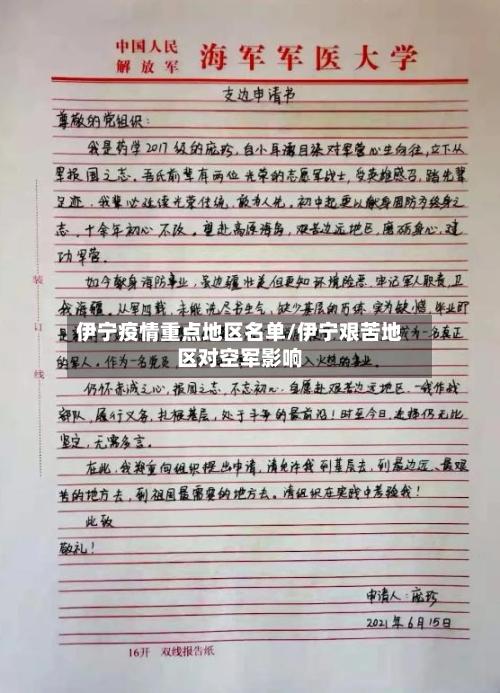 中国人民
解放军
海军军医大学
支边申请书
尊敬的党组织：
我是药学2017级的庞珍，自小耳濡目染对军营心生向往，立下从
军报国之志。吾氏前辈有两位光荣的志愿军战士，受英雄感召，踏先辈
足迹，我辈必延续光荣传统，敢为人先。初中起更以献身国防为终身之
志，十余年初心不改。望赴高原海岛，艰苦边远地区，磨砺身心，建
功军营。
如今献身海防事业，
牢记军人职责，卫
我海疆。从军四载，
缺少基层的历练，实为缺憾。毕业即
伊宁疫情重点地区名单/伊宁艰苦地
区对空军影响
为一名真正
的军人。作为一名党员，
入火热的事业。
仍怀赤诚之心，报国之志，不忘初心，自愿赴艰苦边远地区
部队，履行义务，扎根基层，处于斗争的最前沿！时至今日，选择仍无比
坚定，无需多言。
在此，我郑重向组织提出申请，请允许我到基层去，到最边远、最艰
苦的地方去，到祖国最需要的地方去。请组织在实践中考验我！
此致
敬礼！
申请人：庞珍
2021年6月15日
装
订
线
16开 双线报告纸